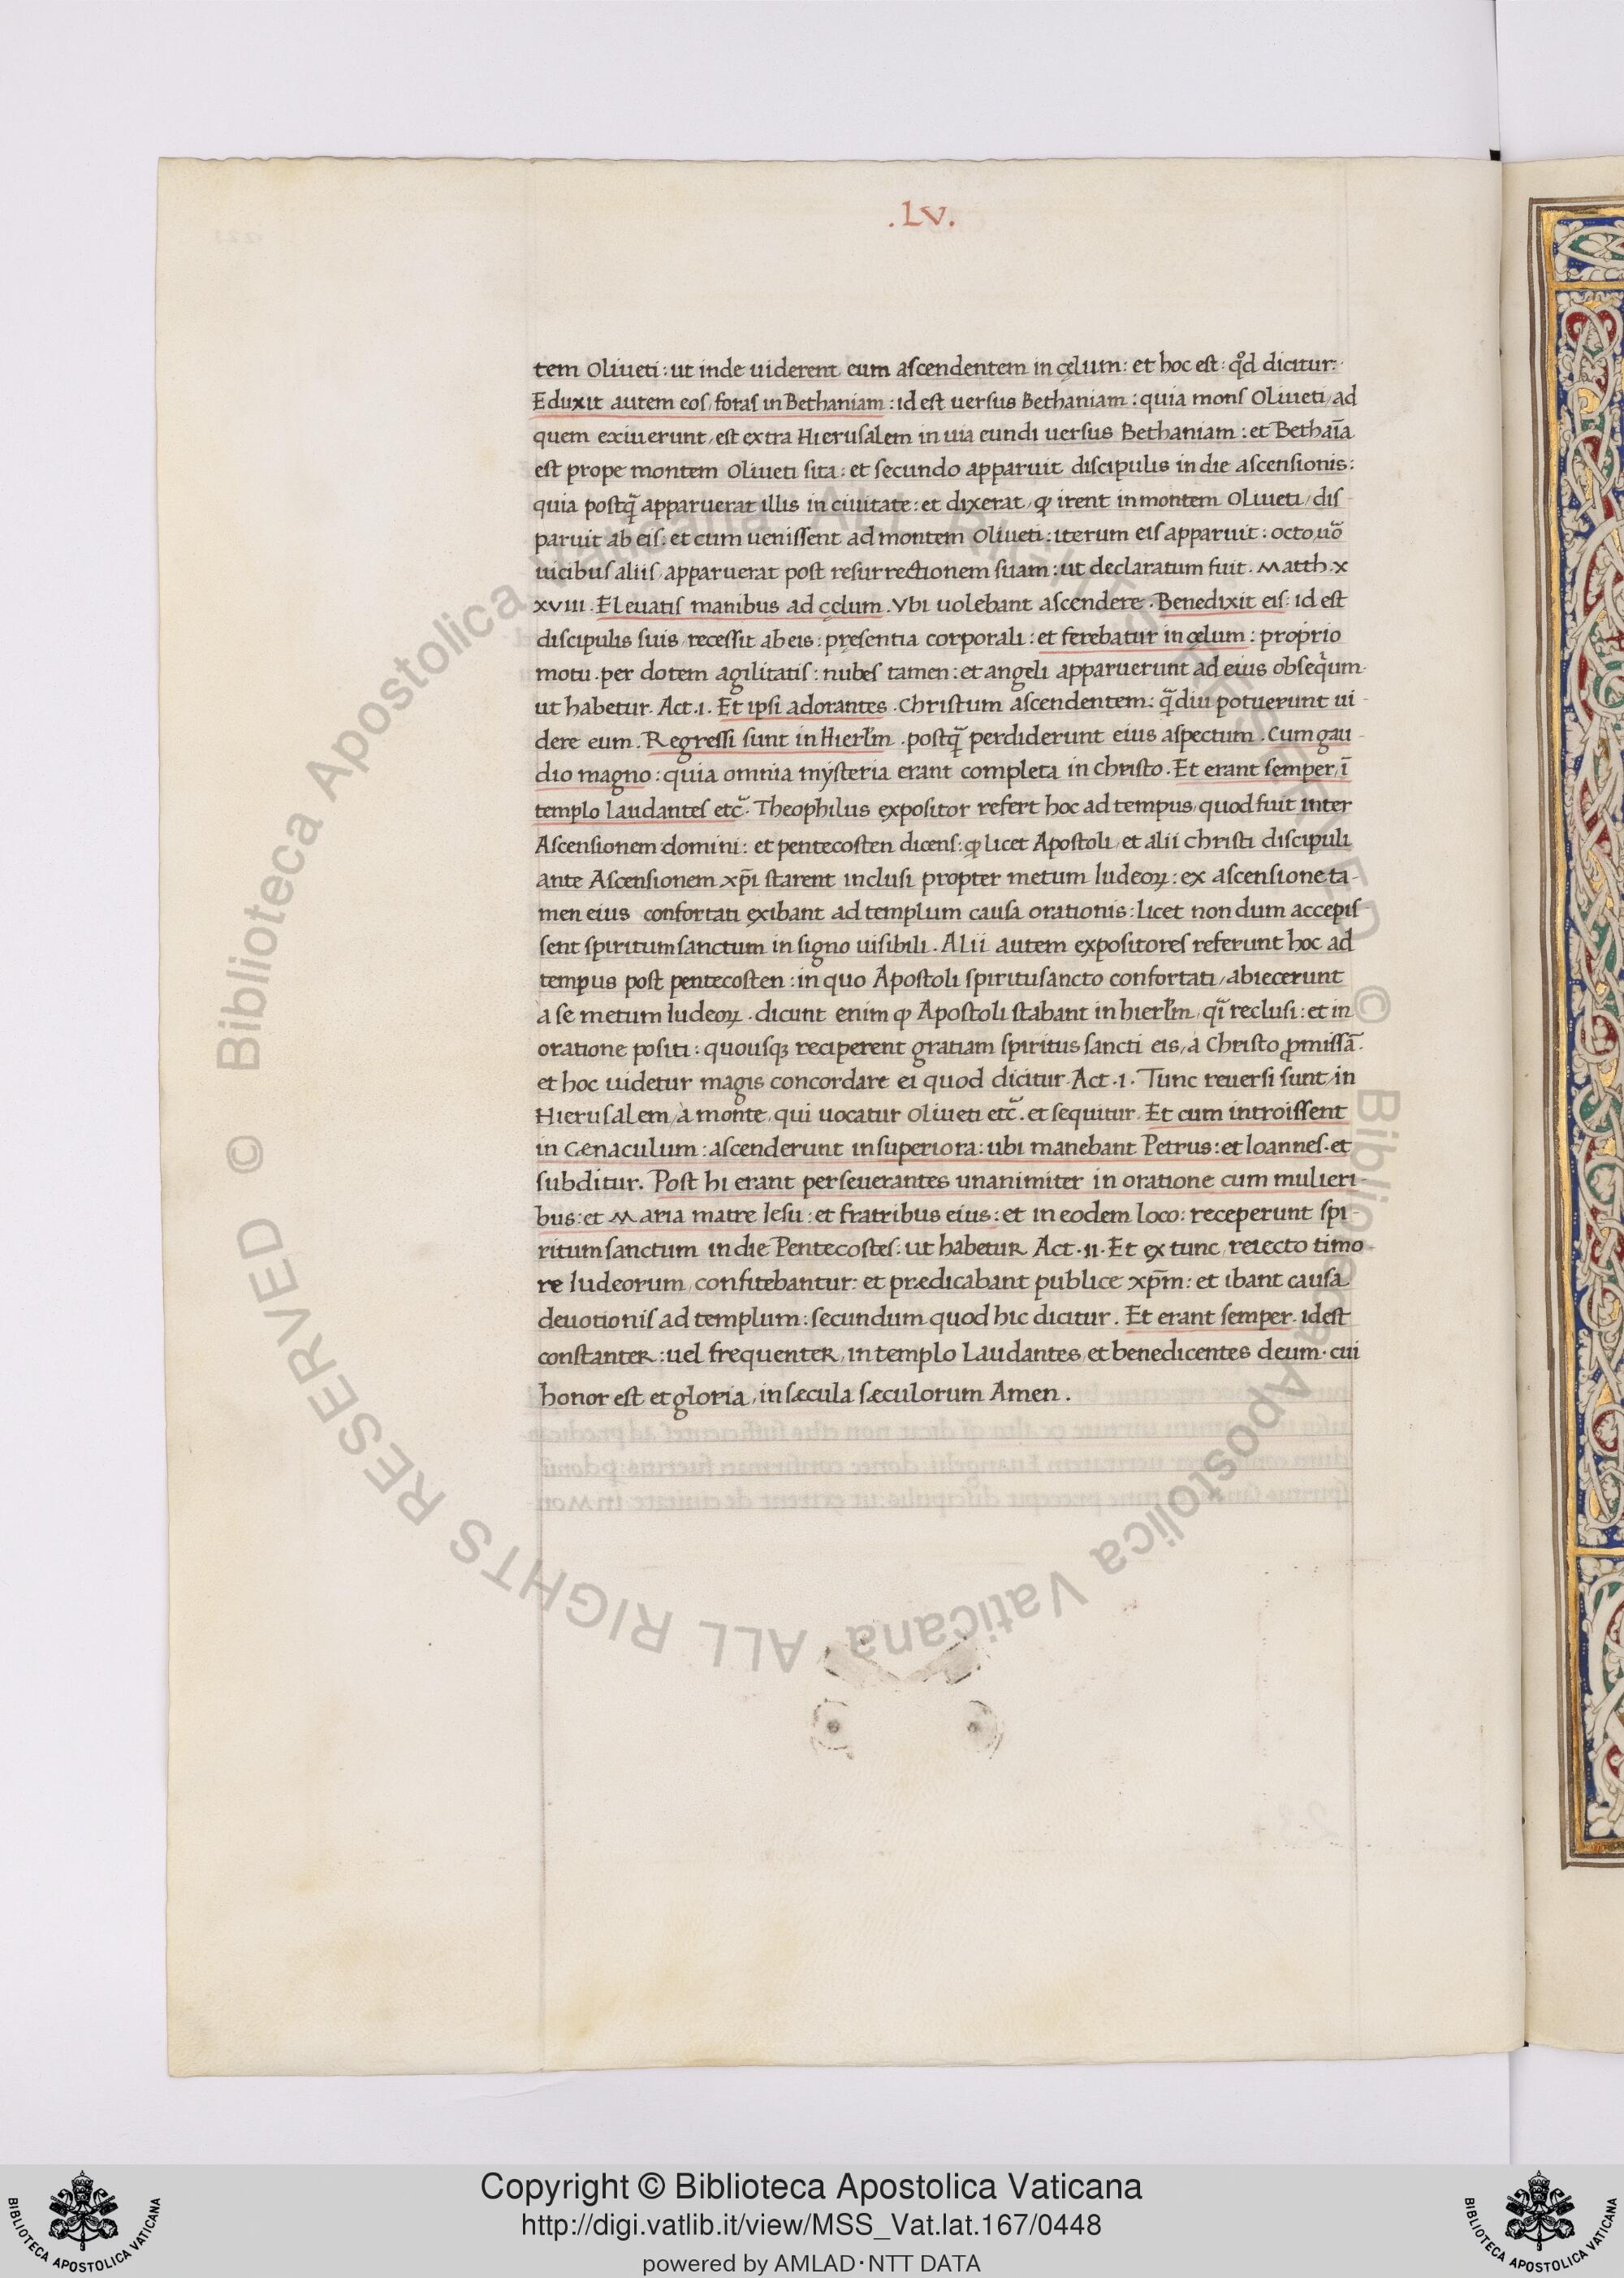 .LV.
tem Oliueti: ut inde uiderent eum ascendentem in cęlum: et hoc est: qd̊ dicitur:
Eduxit autem eos, foras in Bethaniam: id est uersus Bethaniam: quia mons Oliueti, ad
quem exiuerunt, est extra Hierusalem in uia eundi uersus Bethaniam: et Bethaīa
est prope montem Oliueti sita: et secundo apparuit discipulis in die ascensionis:
quia postq̃ apparuerat illis in ciuitate: et dixerat, ꝙ irent in montem Oliueti, dis-
paruit ab eis: et cum uenissent ad montem Oliueti: iterum eis apparuit: octo uõ
uicibus aliis, apparuerat post resurrectionem suam: ut declaratum fuit. Matth. x
xviii. Eleuatis manibus ad cęlum. Vbi uolebant ascendere. Benedixit eis: id est
discipulis suis, recessit ab eis: pręsentia corporali: et ferebatur in cęlum: proprio
motu. per dotem agilitatis: nubes tamen: et angeli apparuerunt ad eius obseq̃um.
ut habetur. Act. 1. Et ipsi adorantes. Christum ascendentem: q̃diu potuerunt ui-
dere eum. Regressi sunt in Hierłm. postq̃ perdiderunt eius aspectum. Cum gau-
dio magno: quia omnia mysteria erant completa in Christo. Et erant semper, ī
templo Laudantes etc̃. Theophilus expositor refert hoc ad tempus, quod fuit inter
Ascensionem domini: et pentecosten dicens: ꝙ licet Apostoli, et alii Christi discipuli
ante Ascensionem xp̄i starent inclusi propter metum Iudeoꝝ: ex ascensione ta-
men eius confortati exibant ad templum causa orationis: licet non dum accepis-
sent spiritum sanctum in signo uisibili. Alii autem expositores referunt hoc ad
tempus post pentecosten: in quo Apostoli spiritusancto confortati, abiecerunt
à se metum Iudeoꝝ. dicunt enim ꝙ Apostoli stabant in hierłm, q̃i reclusi: et in
oratione positi: quousqꝫ reciperent gratiam spiritus sancti eis, à Christo ꝓmissã.
et hoc uidetur magis concordare ei quod dicitur. Act. 1. Tunc reuersi sunt, in
Hierusalem, à monte, qui uocatur oliueti etc̃. et sequitur. Et cum introissent
in Cænaculum: ascenderunt in superiora: ubi manebant Petrus: et Ioannes. et
subditur. Post hi erant perseuerantes unanimiter in oratione cum mulieri-
bus: et Maria matre Iesu: et fratribus eius: et in eodem loco: receperunt spi-
ritum sanctum in die Pentecostes: ut habetur Act. 11. Et ex tunc, reiecto timo-
re Iudeorum, confitebantur: et prædicabant publice xp̄m: et ibant causa
deuotionis ad templum: secundum quod hic dicitur. Et erant semper. id est
constanter: uel frequenter, in templo Laudantes, et benedicentes deum. cui
honor est et gloria, in sæcula sæculorum Amen.
© Biblioteca Apostolica Vaticana ALL RIGHTS RESERVED © Biblioteca Apostolica Vaticana ALL RIGHTS RESERVED
Copyright © Biblioteca Apostolica Vaticana
http://digi.vatlib.it/view/MSS_Vat.lat.167/0448
powered by AMLAD·NTT DATA
BIBLIOTECA APOSTOLICA VATICANA
BIBLIOTECA APOSTOLICA VATICANA